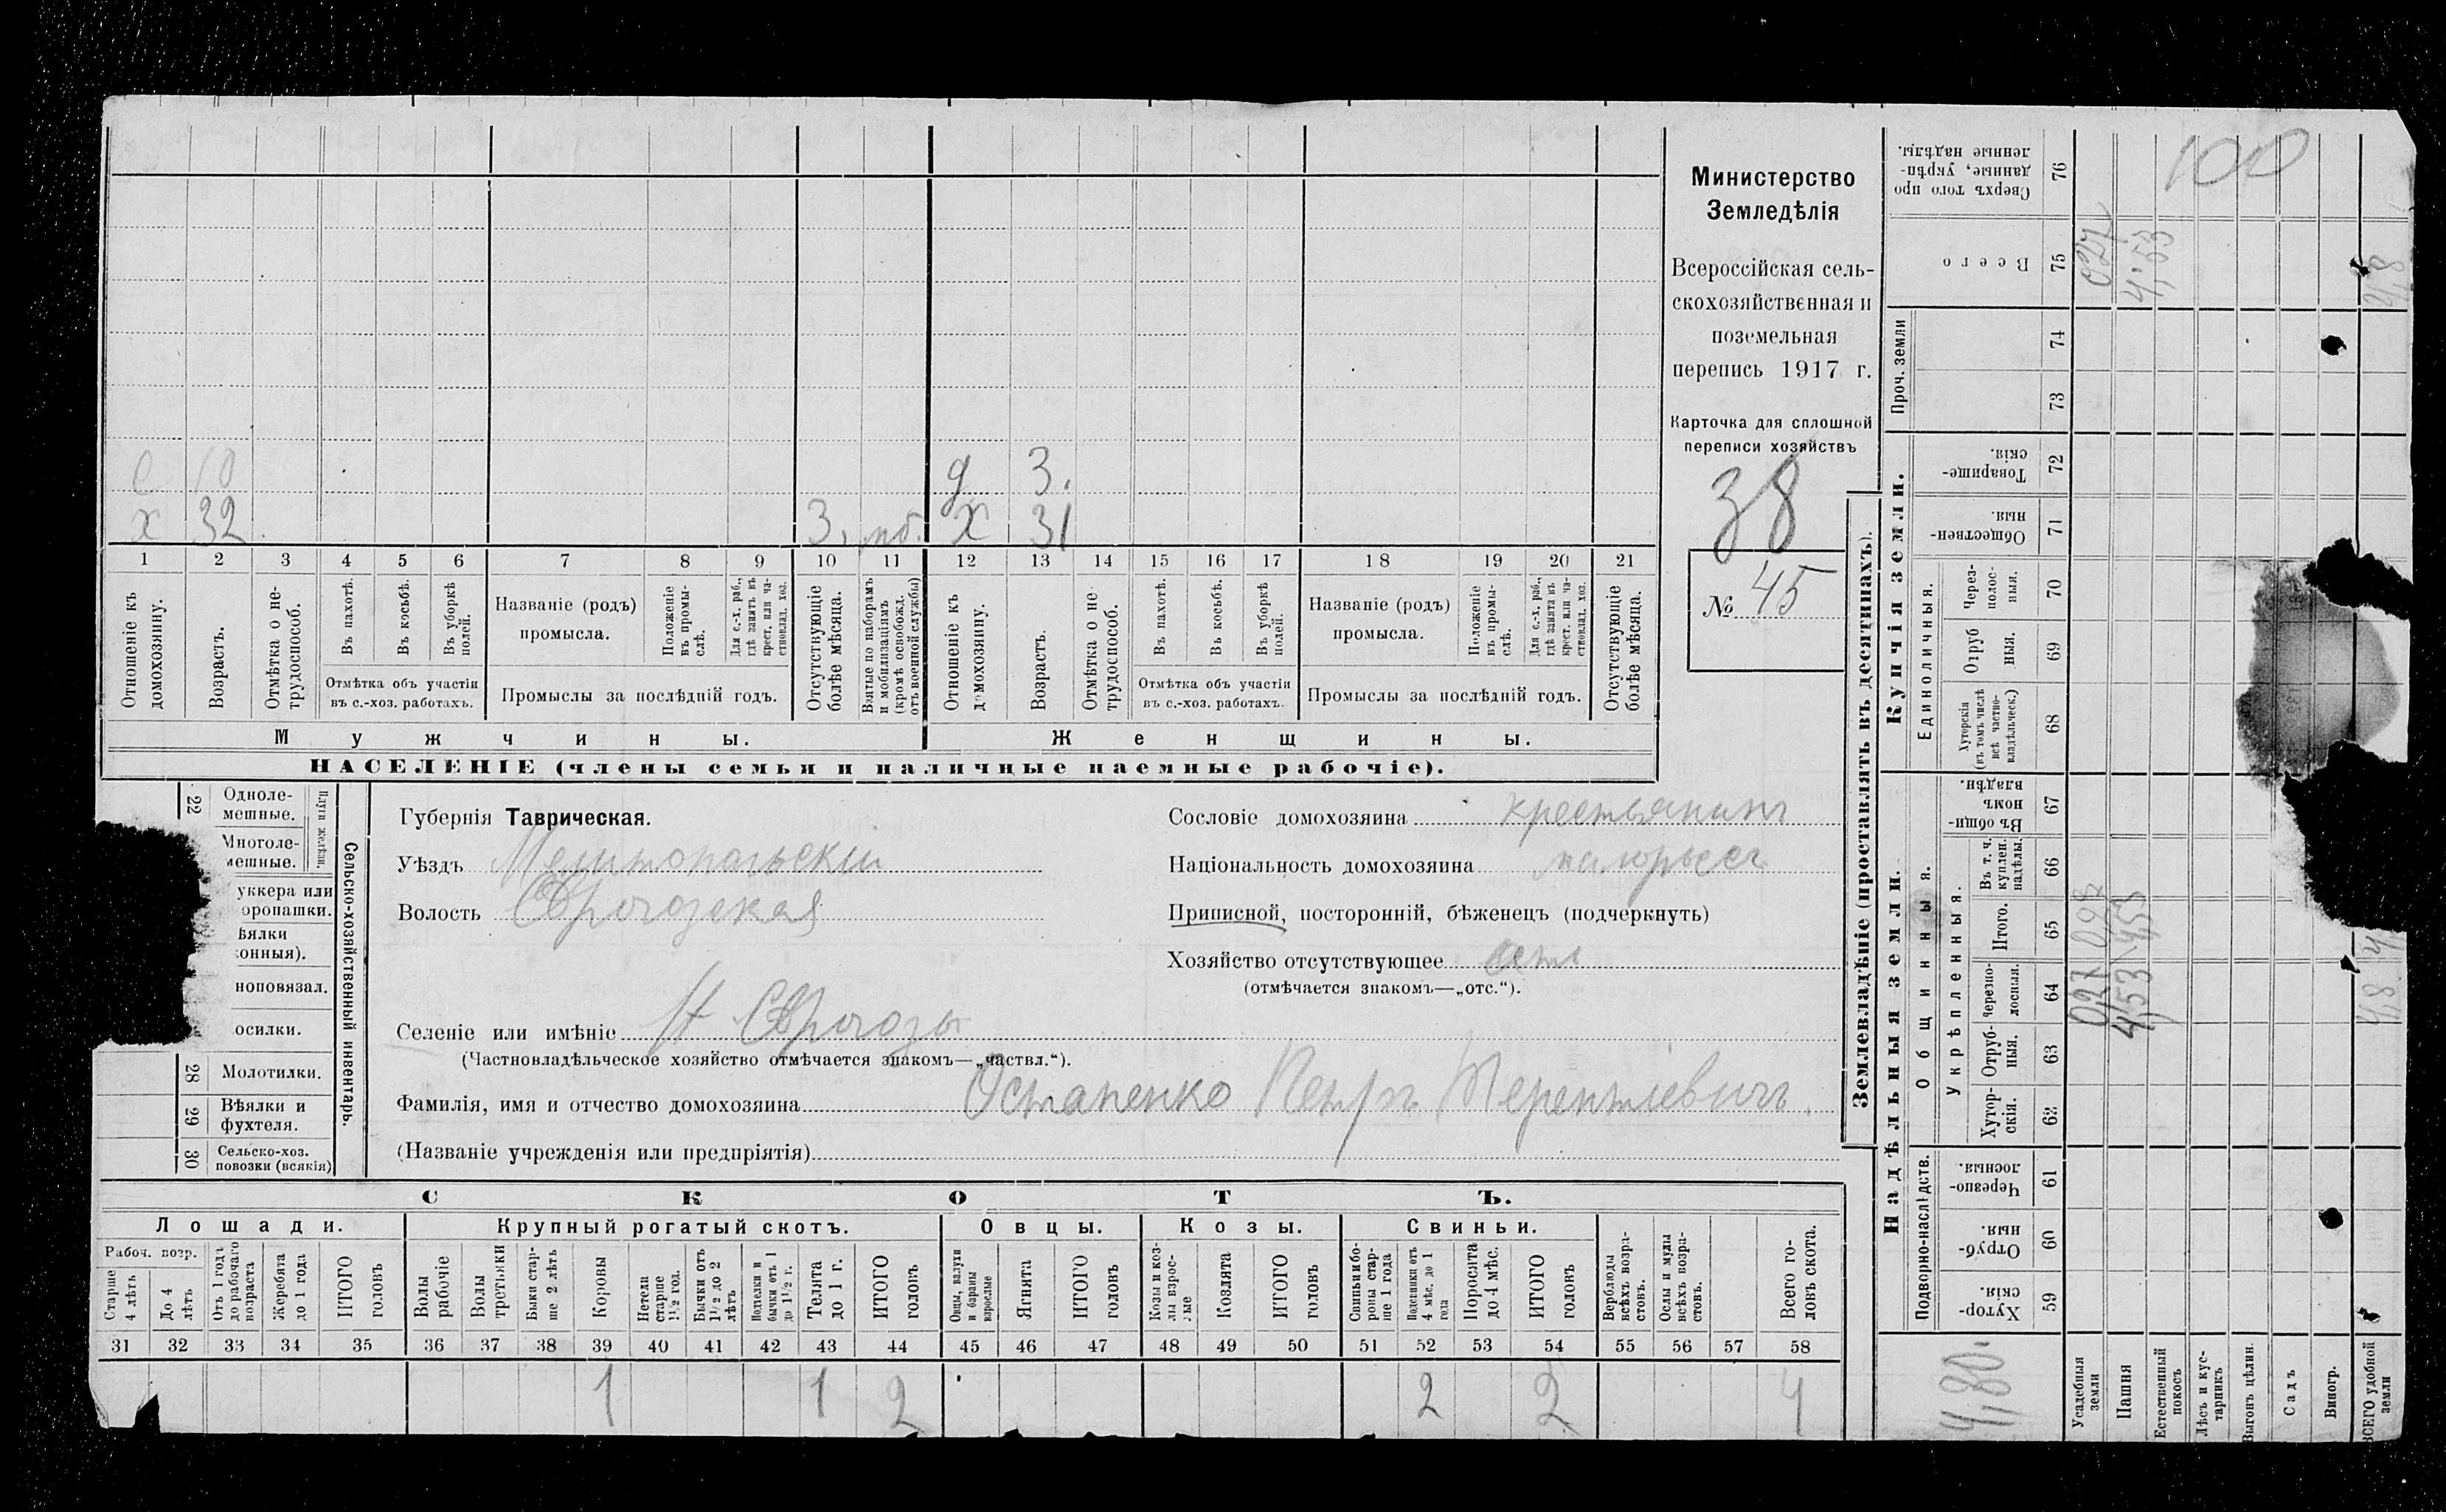 Министерство
Земледѣлія
Всероссійская сель-
скохозяйственная и
поземельная
перепись 1917 г.
Карточка для сплошной
переписи хозяйствъ
38
№ 45
с 10 д 3.
х 32 3. мб. х 31
1 2 3 4 5 6 7 8 9 10 11 12 13 14 15 16 17 18 19 20 21
Отношеніе къ домохозяину.
Возрастъ.
Отмѣтка о не-трудоспособ.
Въ пахотѣ.
Въ косьбѣ.
Въ уборкѣ полей.
Отмѣтка объ участіи
въ с.-хоз. работахъ.
Названіе (родъ)
промысла.
Положеніе въ промы-слѣ.
Для с.-х. раб., гдѣ занятъ въ крест. или ча-стновлад. хоз.
Промыслы за послѣдній годъ.
Отсутствующіе болѣе мѣсяца.
Взятые по наборамъ и мобилизаціямъ (кромѣ освобожд. отъ военной службы)
Отношеніе къ домохозяину.
Возрастъ.
Отмѣтка о не-трудоспособ.
Въ пахотѣ.
Въ косьбѣ.
Въ уборкѣ полей.
Отмѣтка объ участіи
въ с.-хоз. работахъ.
Названіе (родъ)
промысла.
Положеніе въ промы-слѣ.
Для с.-х. раб., гдѣ занята въ крест. или ча-стновлад. хоз.
Промыслы за послѣдній годъ.
Отсутствующіе болѣе мѣсяца.
Мужчины. Женщины.
НАСЕЛЕНІЕ (члены семьи и наличные наемные рабочіе).
Сельско-хозяйственный инвентарь.
Плуги желѣзн.
22 Одноле-
мешные.
Многоле-
мешные.
уккера или
оропашки.
ѣялки
онныя).
ноповязал.
осилки.
28 Молотилки.
29 Вѣялки и
фухтеля.
30 Сельско-хоз.
повозки (всякія)
Губернія Таврическая.
Уѣздъ Мелитопольскій
Волость
Селеніе или имѣніе
(Частновладѣльческое хозяйство отмѣчается знакомъ—„частвл.“).
Фамилія, имя и отчество домохозяина Остапенко Петръ Терентіевичъ.
(Названіе учрежденія или предпріятія)
Сословіе домохозяина крестьянинъ
Національность домохозяина малорьсъ
Приписной, посторонній, бѣженецъ (подчеркнуть)
Хозяйство отсутствующее
(отмѣчается знакомъ—„отс.“).
СКОТЪ.
Лошади. Крупный рогатый скотъ. Овцы. Козы. Свиньи.
Рабоч. возр.
Старше 4 лѣтъ
До 4 лѣтъ
Отъ 1 годъ до рабочаго возраста
Жеребята до 1 года
ИТОГО головъ
Волы рабочіе
Волы третьяки
Быки стар-ше 2 лѣтъ
Коровы
Нетели старше 1½ год.
Бычки отъ 1½ до 2 лѣтъ
Подтелки и бычки отъ 1 до 1½ г.
Телята до 1 г.
ИТОГО головъ
Овцы, валухи и бараны взрослые
Ягнята
ИТОГО головъ
Козы и коз-лы взрос-лые
Козлята
ИТОГО головъ
Свиньи и бо-ровы стар-ше 1 года
Подсвинки отъ 4 мѣс. до 1 года
Поросята до 4 мѣс.
ИТОГО головъ
Верблюды всѣхъ возра-стовъ.
Ослы и мулы всѣхъ возра-стовъ.
Всего го-ловъ скота.
31 32 33 34 35 36 37 38 39 40 41 42 43 44 45 46 47 48 49 50 51 52 53 54 55 56 57 58
1 1 2 2 2 4
Землевладѣніе (проставлять въ десятинахъ).
Надѣльныя земли.
Купчія земли.
Проч. земли
Подворно-наслѣдств.
Общинныя.
Укрѣпленныя.
Единоличныя.
Хутор-скія. 59
Отруб-ныя. 60
Черезпо-лосныя. 61
Хутор-скія. 62
Отруб-ныя. 63
Черезпо-лосныя. 64
Итого. 65
Въ т. ч. куплен. надѣлы. 66
Въ общи-номъ владѣн. 67
Хуторскія (въ томъ числѣ всѣ частно-владѣльческ.) 68
Отруб ныя. 69
Через-полос-ныя. 70
Обществен-ныя. 71
Товарище-скія. 72
73
74
Всего 75
Сверхъ того про данные, укрѣп-ленные надѣлы. 76
100
4,80.
Усадебныя земли 027 027
Пашня 4,53 4,53 4,53
Естественный покосъ
Лѣсъ и кус-тарникъ
Выгонъ цѣлин.
Садъ
Виногр.
ВСЕГО удобной земли 4,8 4,8